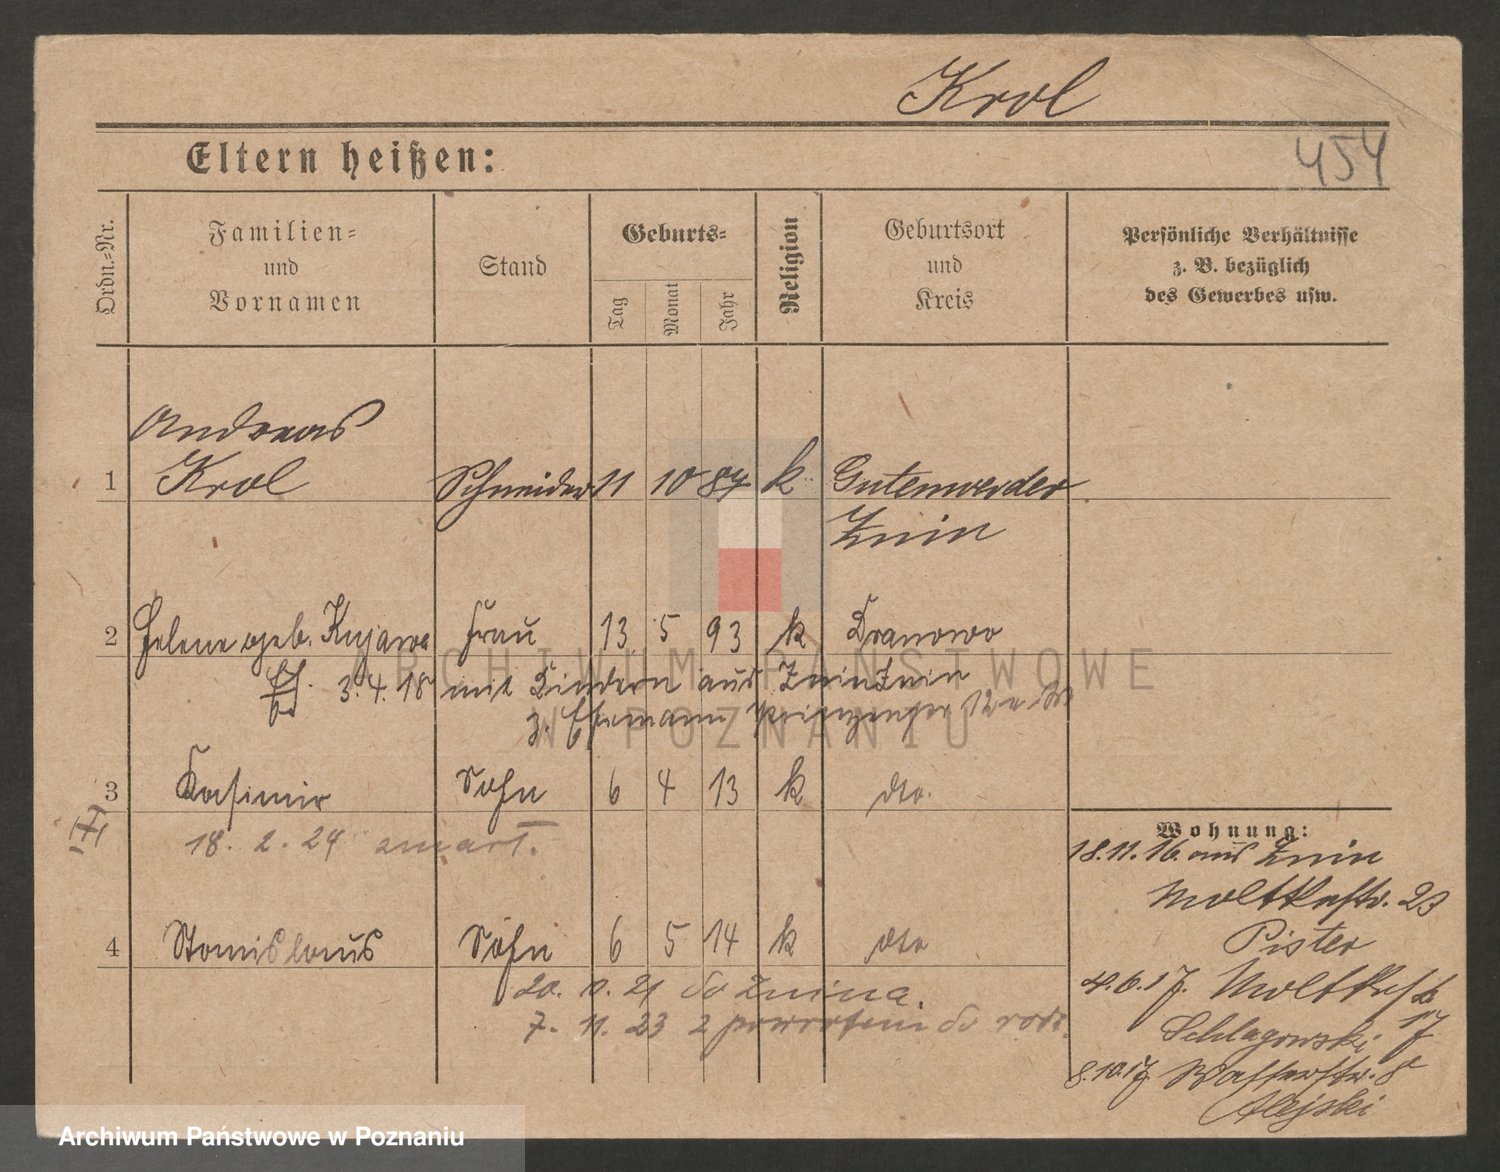 Krol
Eltern heißen:
454
Ordn.=Nr.
Familien=
und
Vornamen
Stand
Geburts=
Tag
Monat
Jahr
Religion
Geburtsort
und
Kreis
Persönliche Verhältnisse
z. B. bezüglich
des Gewerbes usw.
Andreas
1 Krol Schneider 11 10 87 k Gutenwerder
Znin
2 Helene geb. Kujawa Frau 13 5 93 k Dranowo
3.4.18 mit Kindern aus Znin Znin
z. Ehemann
3 Kasimir Sohn 6 4 13 k dto.
18. 2. 24 zmarł.
4 Stanislaus Sohn 6 5 14 k dto
20. 9. 21 do Żnina.
7. 11. 23 z powrotem do rodz.
Wohnung:
18.11.16. aus Znin
Moltkestr. 23
Pister
4.6.17. Moltkestr
17
Schlagowski
8.10.17 Wasserstr. 8
Alejski
ARCHIWUM PAŃSTWOWE
W POZNANIU
Archiwum Państwowe w Poznaniu